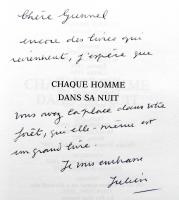 Chère Gunnel
encore des livres qui
reviennent, j'espère que
CHAQUE HOMME
DANS SA NUIT
vous avez la place dans votre
forêt, qui elle-même est
un grand livre.
Je vous embrasse
Julien